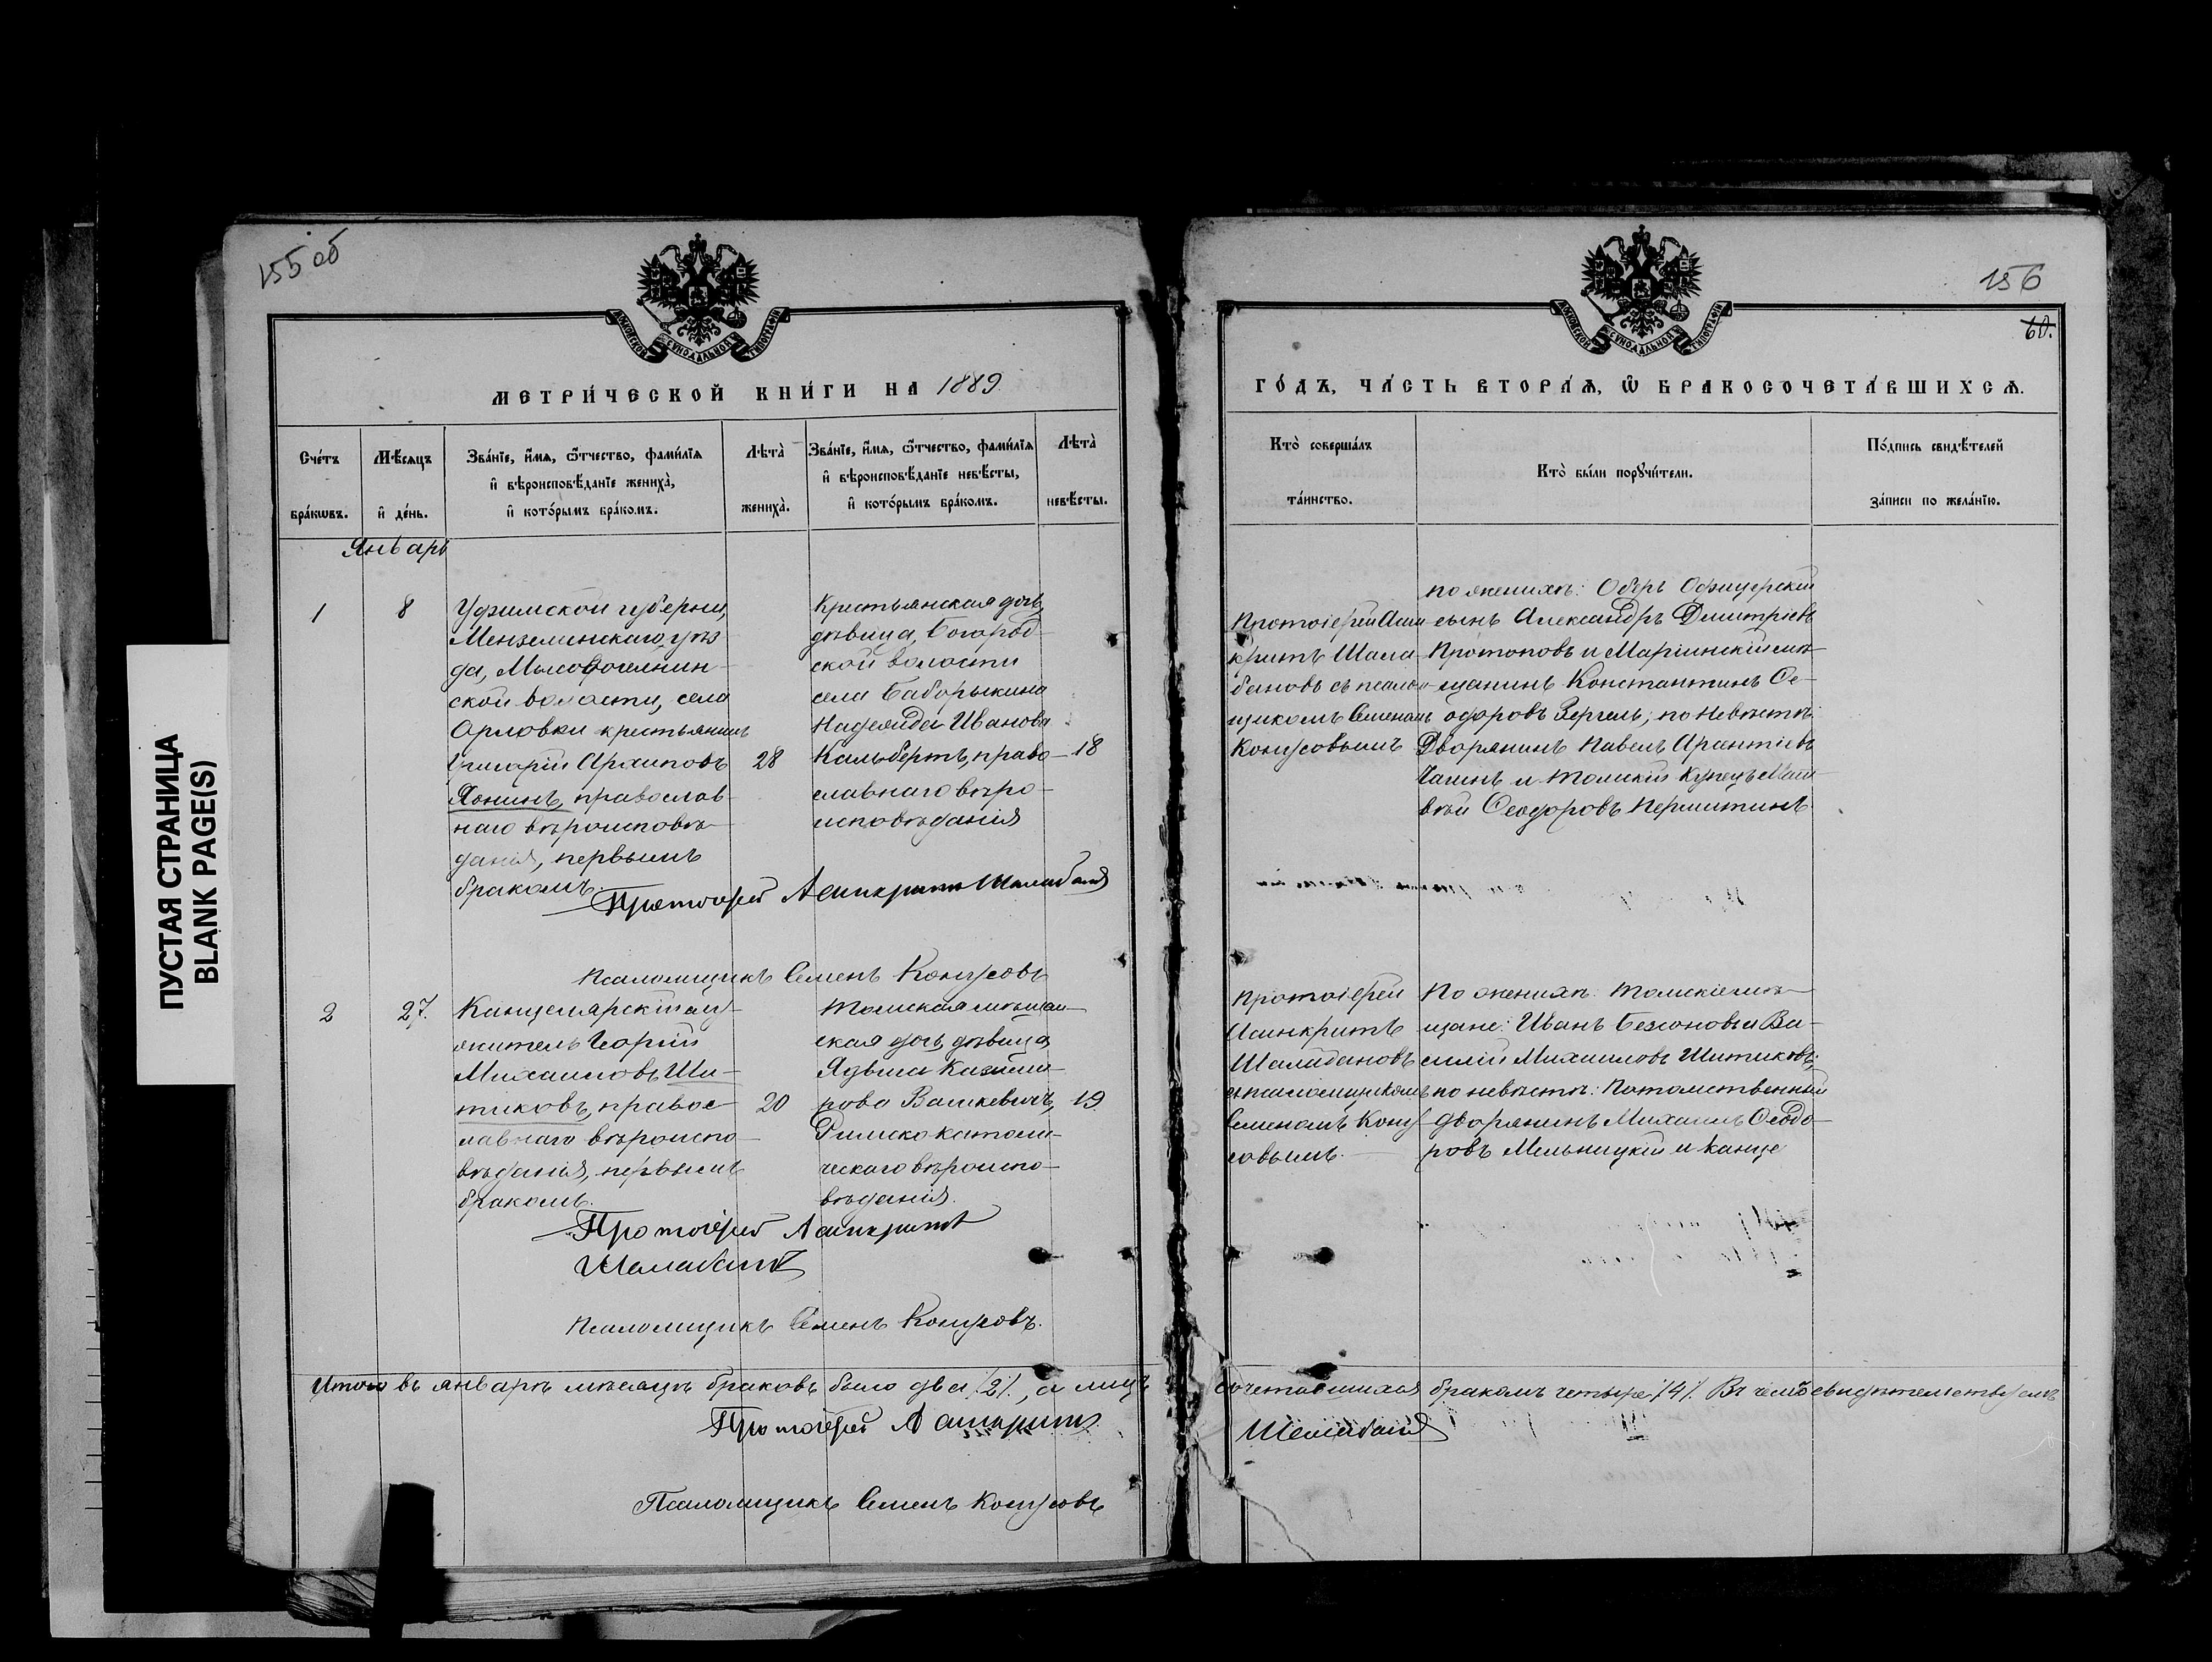 155 об
156
60.
ПУСТАЯ СТРАНИЦА
BLANK PAGE(S)
МОСКОВСКОЙ СѴНОДАЛЬНОЙ ТИПОГРАФІИ
МЕТРИ́ЧЕСКОЙ КНИ́ГИ НА 1889
Сче́тъ бра́кѡвъ.
Мѣ́сяцъ и҆ де́нь.
Зва́нїе, и҆́мѧ, ѻ҆́тчество, фами́лїѧ
и҆ вѣроисповѣ́данїе жениха̀,
и҆ кото́рымъ бра́комъ.
Лѣта̀ жениха̀.
Зва́нїе, и҆́мѧ, ѻ҆́тчество, фами́лїѧ
и҆ вѣроисповѣ́данїе невѣ́сты,
и҆ кото́рымъ бра́комъ.
Лѣта̀ невѣ́сты.
Январь
1
8
Уфимской губерніи,
Мензелинскаго уѣз-
да,
ской волости, села
Орловки крестьянинъ
Григорій Архиповъ
православ-
наго вѣроисповѣ-
данія, первымъ
бракомъ.
28
Крестьянская дочь,
дѣвица, Богород-
ской волости
села Бабарыкина
Надежда Иванова
Кальбертъ, право-
славнаго вѣро-
исповѣданія
18
Протоіерей Асинкритъ
Псаломщикъ Семенъ
2
27.
Канцелярскій слу-
житель Георгій
Михаиловъ Ши-
тиковъ, правос-
лавнаго вѣроиспо-
вѣданія, первымъ
бракомъ.
20
Томская мѣщан-
ская дочь, дѣвица
Ядвига Казими-
рова Вашкевичъ,
Римско католи-
ческаго вѣроиспо-
вѣданія.
19
Протоіерей Асинкритъ
Псаломщикъ Семенъ
Итого въ январѣ мѣсяцѣ браковъ было два /2/, а лицъ
Протоіерей Асинкритъ
Псаломщикъ Семенъ
МОСКОВСКОЙ СѴНОДАЛЬНОЙ ТИПОГРАФІИ
ГО́ДЪ, ЧА́СТЬ ВТОРА́Ѧ, Ѡ҆ БРАКОСОЧЕТА́ВШИХСѦ.
Кто̀ соверша́лъ
та́инство.
Кто̀ бы́ли порꙋчи́тели.
По́дпись свидѣ́телей
за́писи по жела́нїю.
Протоіерей Асин-
критъ Шала-
бановъ съ псалом-
щикомъ Семеномъ
по женихѣ: Оберъ Офицерскій
сынъ Александръ Димитріевъ
Протопоповъ и Маріинскій мѣ-
щанинъ Константинъ Ѳе-
одоровъ Зергель; по невѣстѣ:
Дворянинъ Павелъ
и Томскій купецъ Мат-
вѣй Ѳеодоровъ Пермитинъ
Протоіерей
Асинкритъ
Шалабановъ
съ псаломщикомъ
Семеномъ
По женихѣ: Томскіе мѣ-
щане: Иванъ Безсоновъ и Ва-
силій Михаиловъ Шитиковъ;
по невѣстѣ: Потомственный
дворянинъ Михаилъ Ѳеодо-
ровъ Мельницкій и канце
сочетавшихся бракомъ четыре /4/. Въ чемъ свидѣтельствуемъ